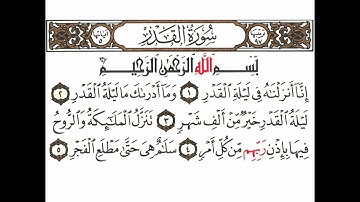 سُورَةُ الْقَدْرِ
بِسْمِ اللَّهِ الرَّحْمَٰنِ الرَّحِيمِ
إِنَّا أَنزَلْنَاهُ فِي لَيْلَةِ الْقَدْرِ ١ وَمَا أَدْرَاكَ مَا لَيْلَةُ الْقَدْرِ ٢
لَيْلَةُ الْقَدْرِ خَيْرٌ مِّنْ أَلْفِ شَهْرٍ ٣ تَنَزَّلُ الْمَلَائِكَةُ وَالرُّوحُ
فِيهَا بِإِذْنِ رَبِّهِم مِّن كُلِّ أَمْرٍ ٤ سَلَامٌ هِيَ حَتَّىٰ مَطْلَعِ الْفَجْرِ ٥